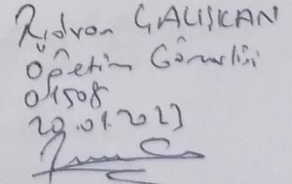 Rıdvan ÇALIŞKAN
Öğretim Görevlisi
01508
20.01.2023